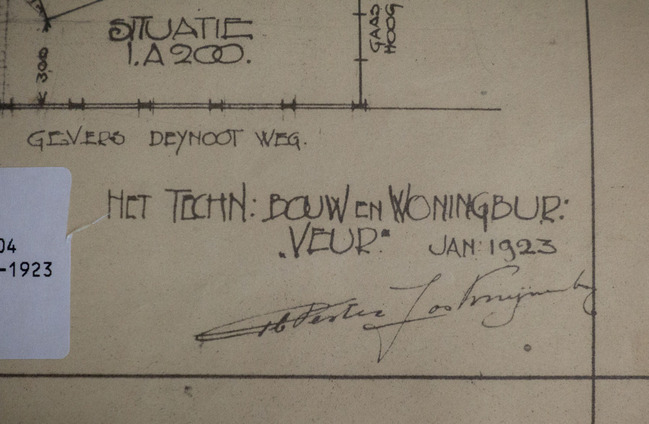 SITUATIE
1. A 200.
GAAS
HOOG
3.00
GEVERS DEYNOOT WEG.
04
-1923
HET TECHN: BOUW EN WONINGBUR:
„VEUR." JAN: 1923